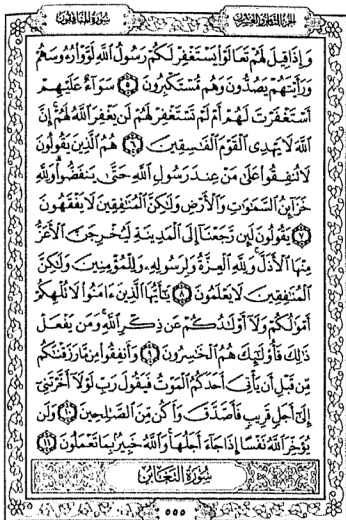 سُورَةُ المُنَافِقُونَ
الجُزْءُ الثَّامِنُ وَالعِشْرُونَ
وَإِذَا قِيلَ لَهُمْ تَعَالَوْا يَسْتَغْفِرْ لَكُمْ رَسُولُ اللَّهِ لَوَّوْا رُءُوسَهُمْ
وَرَأَيْتَهُمْ يَصُدُّونَ وَهُم مُّسْتَكْبِرُونَ ۝٥ سَوَآءٌ عَلَيْهِمْ
أَسْتَغْفَرْتَ لَهُمْ أَمْ لَمْ تَسْتَغْفِرْ لَهُمْ لَن يَغْفِرَ اللَّهُ لَهُمْ ۚ إِنَّ
اللَّهَ لَا يَهْدِى الْقَوْمَ الْفَـٰسِقِينَ ۝٦ هُمُ الَّذِينَ يَقُولُونَ
لَا تُنفِقُوا۟ عَلَىٰ مَنْ عِندَ رَسُولِ اللَّهِ حَتَّىٰ يَنفَضُّوا۟ ۗ وَلِلَّهِ
خَزَآئِنُ السَّمَـٰوَٰتِ وَالْأَرْضِ وَلَـٰكِنَّ الْمُنَـٰفِقِينَ لَا يَفْقَهُونَ
۝٧ يَقُولُونَ لَئِن رَّجَعْنَآ إِلَى الْمَدِينَةِ لَيُخْرِجَنَّ الْأَعَزُّ
مِنْهَا الْأَذَلَّ ۚ وَلِلَّهِ الْعِزَّةُ وَلِرَسُولِهِۦ وَلِلْمُؤْمِنِينَ وَلَـٰكِنَّ
الْمُنَـٰفِقِينَ لَا يَعْلَمُونَ ۝٨ يَـٰٓأَيُّهَا الَّذِينَ ءَامَنُوا۟ لَا تُلْهِكُمْ
أَمْوَٰلُكُمْ وَلَآ أَوْلَـٰدُكُمْ عَن ذِكْرِ اللَّهِ ۚ وَمَن يَفْعَلْ
ذَٰلِكَ فَأُو۟لَـٰٓئِكَ هُمُ الْخَـٰسِرُونَ ۝٩ وَأَنفِقُوا۟ مِن مَّا رَزَقْنَـٰكُم
مِّن قَبْلِ أَن يَأْتِىَ أَحَدَكُمُ الْمَوْتُ فَيَقُولَ رَبِّ لَوْلَآ أَخَّرْتَنِىٓ
إِلَىٰٓ أَجَلٍ قَرِيبٍ فَأَصَّدَّقَ وَأَكُن مِّنَ الصَّـٰلِحِينَ ۝١٠ وَلَن
يُؤَخِّرَ اللَّهُ نَفْسًا إِذَا جَآءَ أَجَلُهَا ۚ وَاللَّهُ خَبِيرٌۢ بِمَا تَعْمَلُونَ ۝١١
سُورَةُ التَّغَابُنِ
٥٥٥